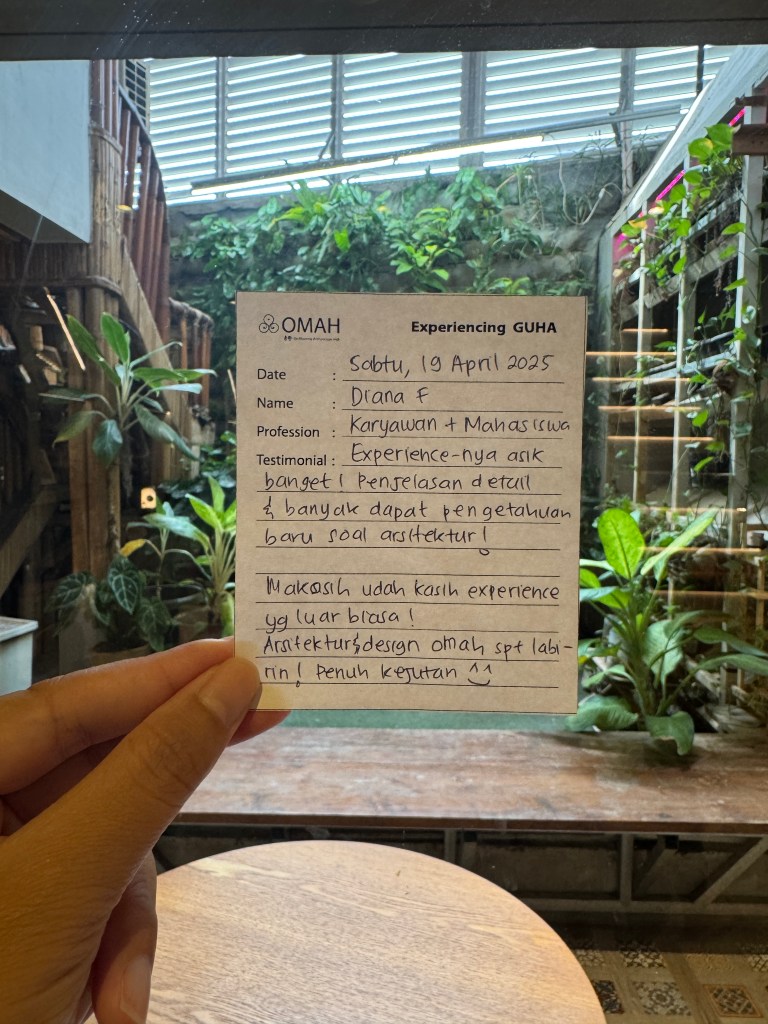 OMAH
Experiencing GUHA
Date : Sabtu, 19 April 2025
Name : Diana F
Profession : Karyawan + Mahasiswa
Testimonial : Experience-nya asik
banget! Penjelasan detail
& banyak dapat pengetahuan
baru soal arsitektur!
Makasih udah kasih experience
yg luar biasa!
Arsitektur & design omah spt labi-
rin! Penuh kejutan ^^